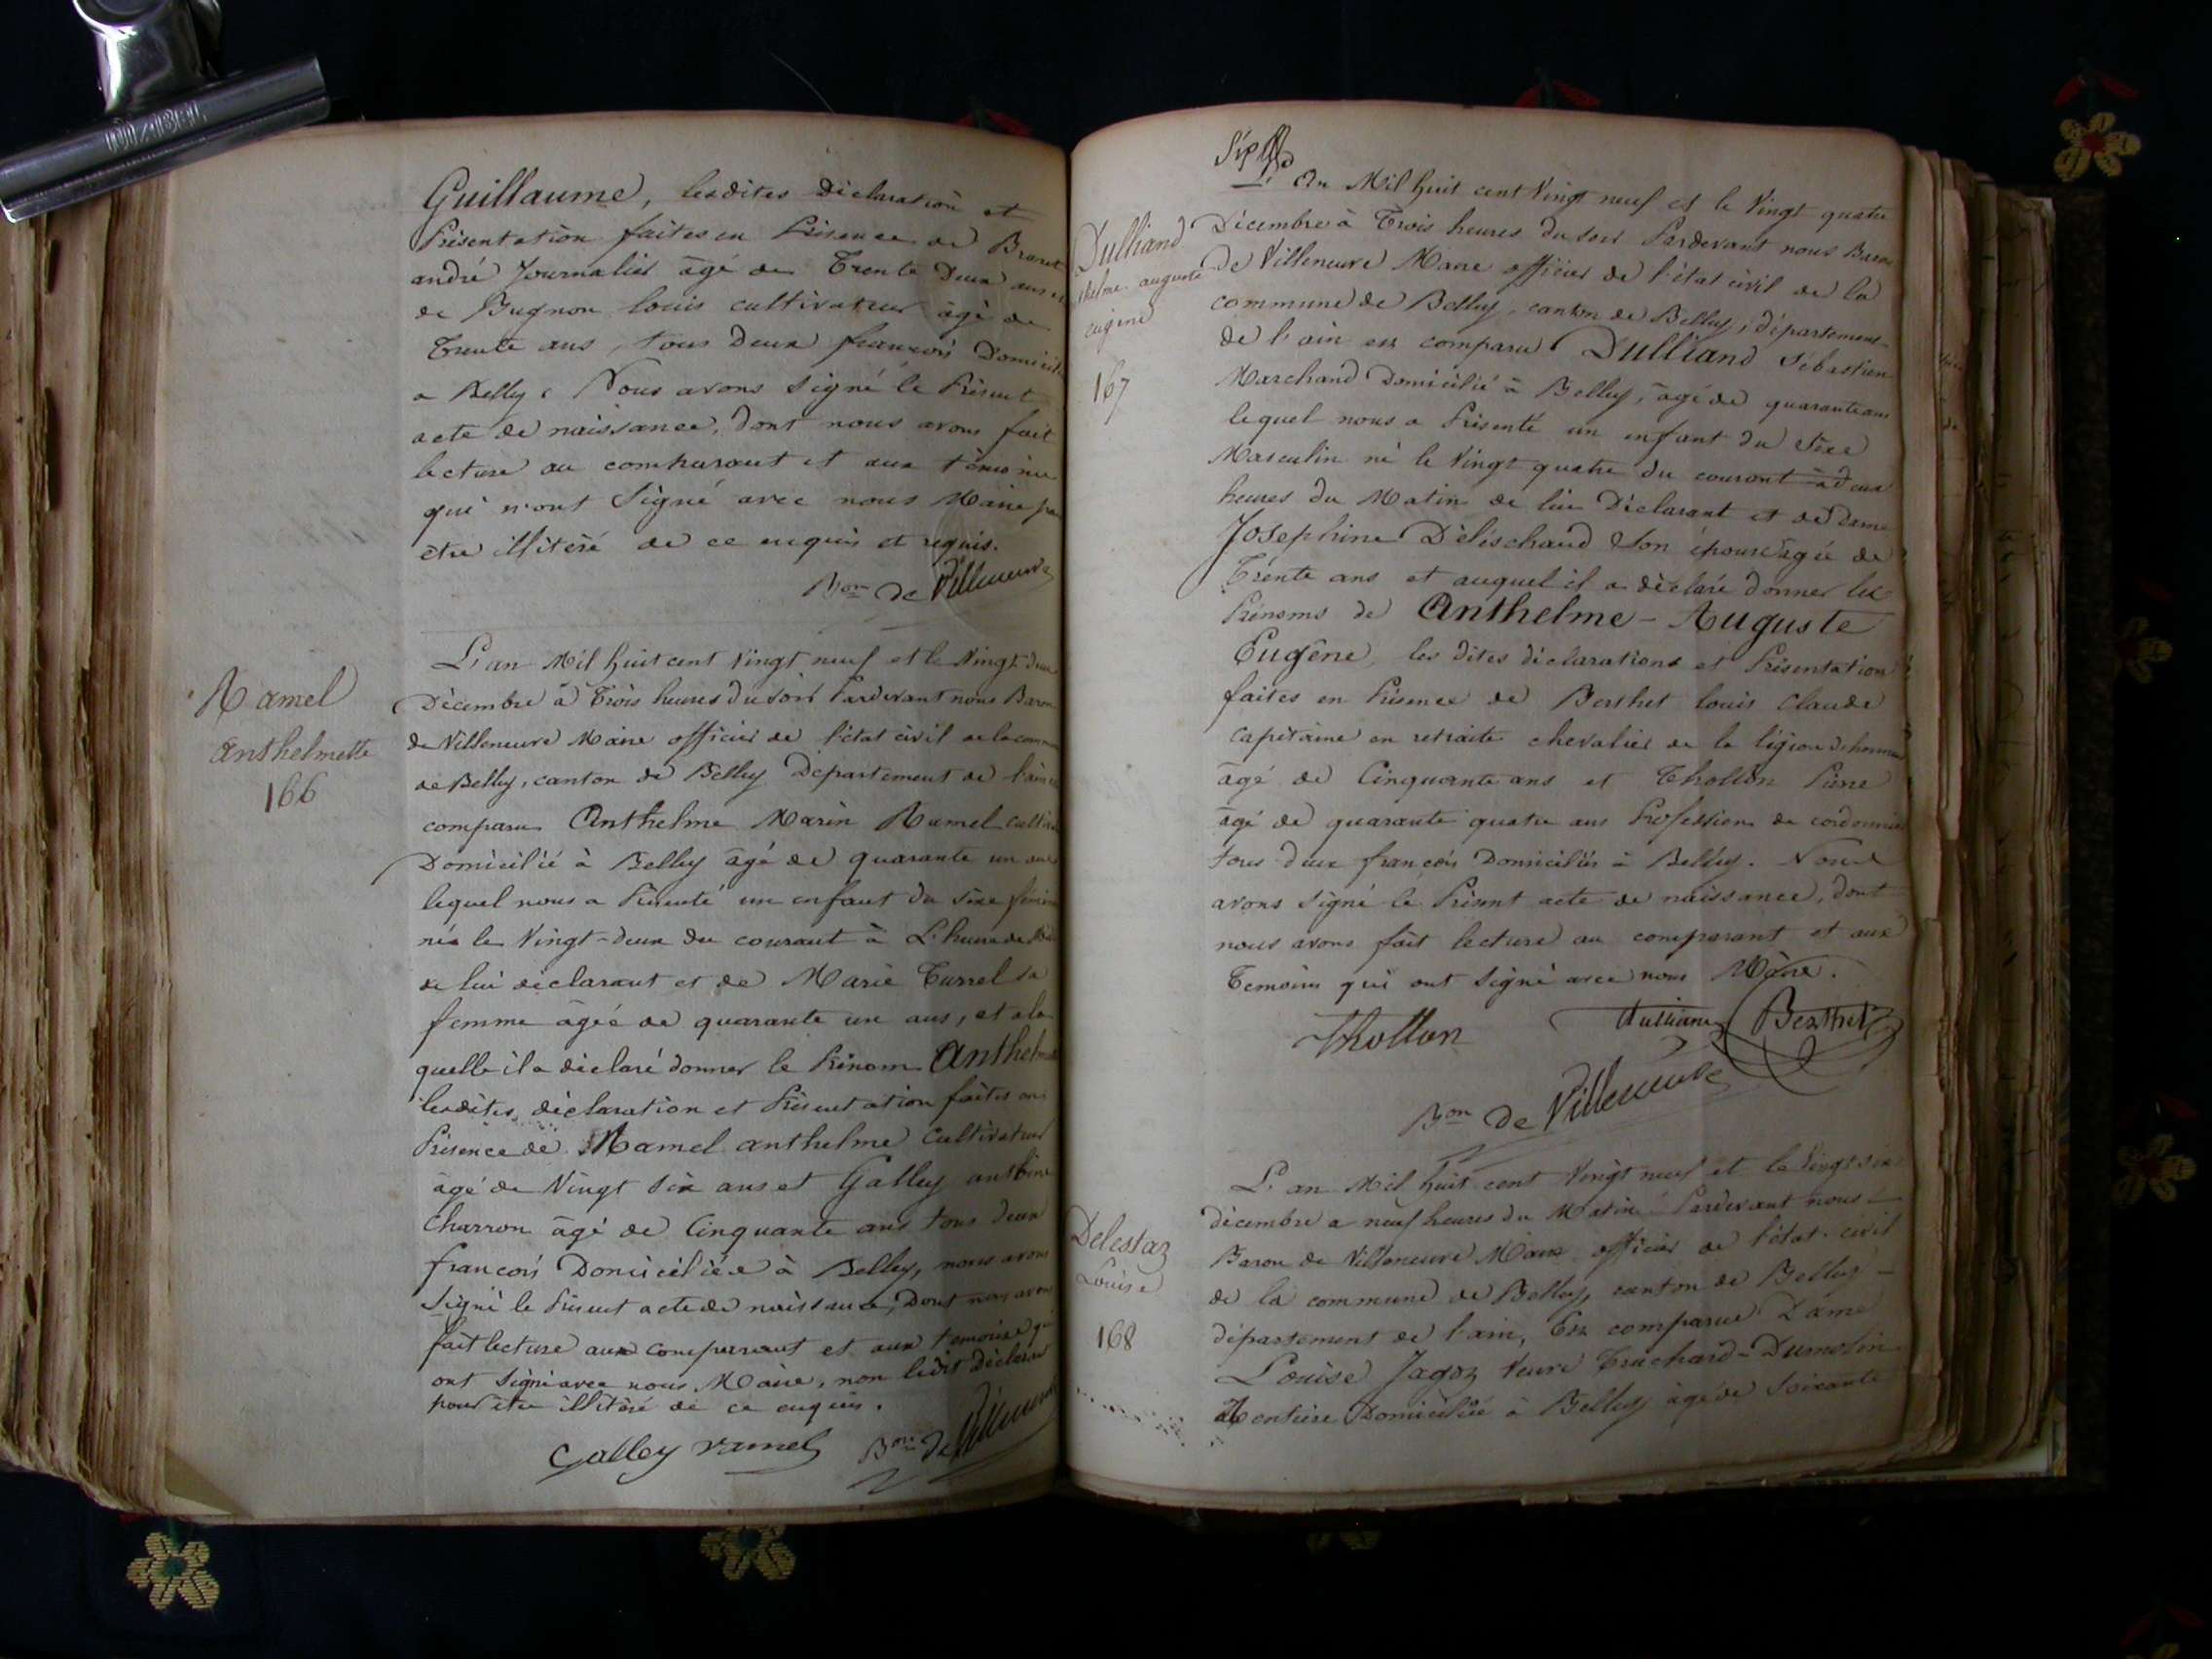 Guillaume, lesdites déclaration et
Présentation faites en Présence de Brunet
andré Journalier âgé de Trente Deux ans et
de Bugnon louis cultivateur âgé de
Trente ans, tous deux françois Domicilié
a Belley. Nous avons signé le Présent
acte de naissance, dont nous avons fait
lecture au comparant et aux témoins
qui n'ont signé avec nous Maire pour
être illitéré de ce enquis et requis.
Bon de Villeneuve
Ramel
anthelmette
166
L'an Mil huit cent vingt neuf et le vingt deux
Décembre à Trois heures du soir Pardevant nous Baron
de Villeneuve Maire officier de l'état civil de la commune
de Belley, canton de Belley Département de l'ain est
comparu Anthelme Marin Ramel
Domicilié à Belley âgé de quarante un ans
lequel nous a Présenté un enfant du sexe féminin
née le Vingt-deux du courant à L'heure de
de lui déclarant et de Marie Turrel sa
femme âgée de quarante un ans, et a la
quelle il a déclaré donner le Prénom Anthelmette
lesdites déclaration et Présentation faites en
Présence de Ramel anthelme Cultivateur
âgé de Vingt six ans et Galley antoine
Charron âgé de Cinquante ans tous deux
françois Domiciliés à Belley, nous avons
signé le Présent acte de naissance, Dont nous avons
fait lecture aux comparant et aux temoins qui
ont signé avec nous Maire, non ledit déclarant
pour être illitéré de ce enquis.
Galley ramel Bon de Villeneuve
167
Dulliand
thelme-auguste
eugène
L'an Mil huit cent Vingt neuf et le Vingt quatre
Décembre à Trois heures du soir Pardevant nous Baron
de Villeneuve Maire officier de l'état civil de la
commune de Belley, canton de Belley, département
de l'ain est comparu Dulliand Sébastien
Marchand Domicilié à Belley, âgé de quarante ans
lequel nous a Présenté un enfant du Sexe
Masculin né le Vingt quatre du courant à deux
heures du Matin de lui Déclarant et de Dame
Josephine Déléschaud Son épouse âgée de
Trente ans et auquel il a déclaré donner les
Prénoms de Anthelme-Auguste
Eugène, les dites déclarations et Présentation
faites en Présence de Berthet louis Claude
Capitaine en retraite chevalier de la légion d'honneur
âgé de Cinquante ans et Thollon Pierre
âgé de quarante quatre ans Profession de cordonnier
tous deux françois Domiciliés à Belley. Nous
avons signé le Présent acte de naissance, dont
nous avons fait lecture au comparant et aux
Temoins qui ont signé avec nous Maire.
Thollon Dulliand Berthet
Bon de Villeneuve
Delestaz
Louise
168
L'an Mil huit cent Vingt neuf et le Vingt six
décembre a neuf heures du Matin Pardevant nous
Baron de Villeneuve Maire officier de l'état-civil
de la commune de Belley, canton de Belley
département de l'ain, Est comparue Dame
Louise Jagoz Veuve Truchard-Dumolin
Rentière Domiciliée à Belley âgée de Soixante